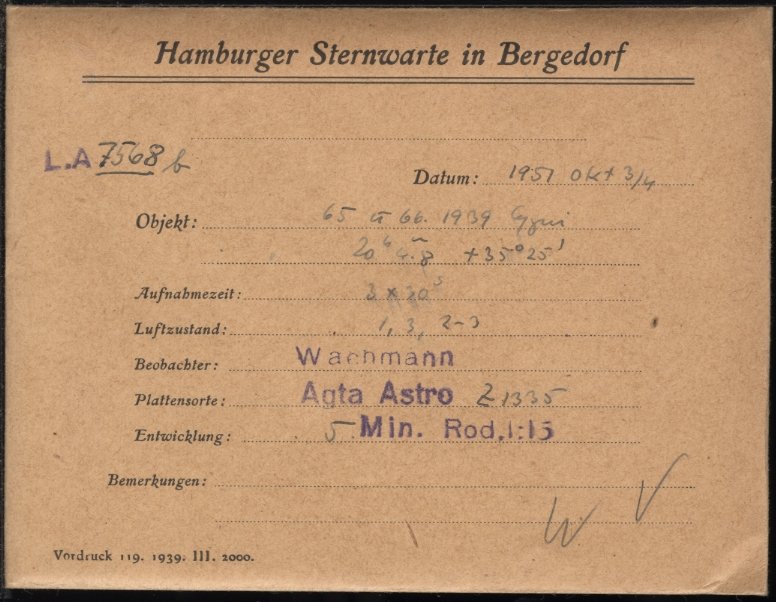 Hamburger Sternwarte in Bergedorf
L.A 7568 b
Datum: 1951 Okt 3/4
Objekt: 65 u 66. 1939 Cygni
20 +35° 25'
Aufnahmezeit: 3 x 30s
Luftzustand: 1, 3, 2-3
Beobachter: Wachmann
Plattensorte: Agfa Astro Z 1335
Entwicklung: 5 Min. Rod.1:15
Bemerkungen:
W V
Vordruck 119. 1939. III. 2000.